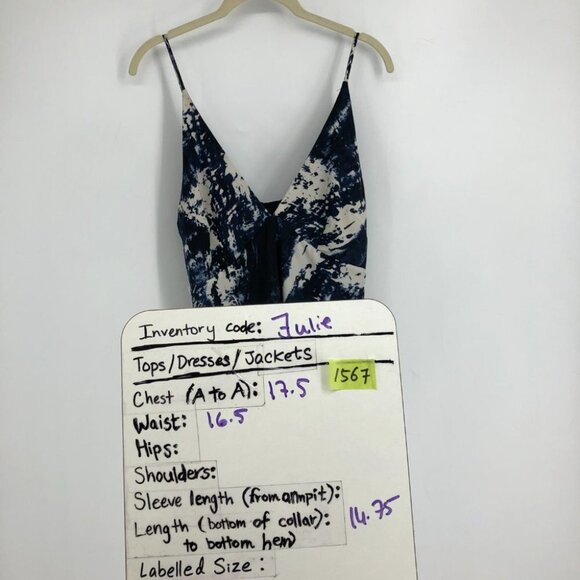 Inventory code: Julie
Tops/Dresses/Jackets
Chest (A to A): 17.5
1567
Waist: 16.5
Hips:
Shoulders:
Sleeve length (from armpit):
Length (bottom of collar): 14.75
to bottom hem)
Labelled Size: